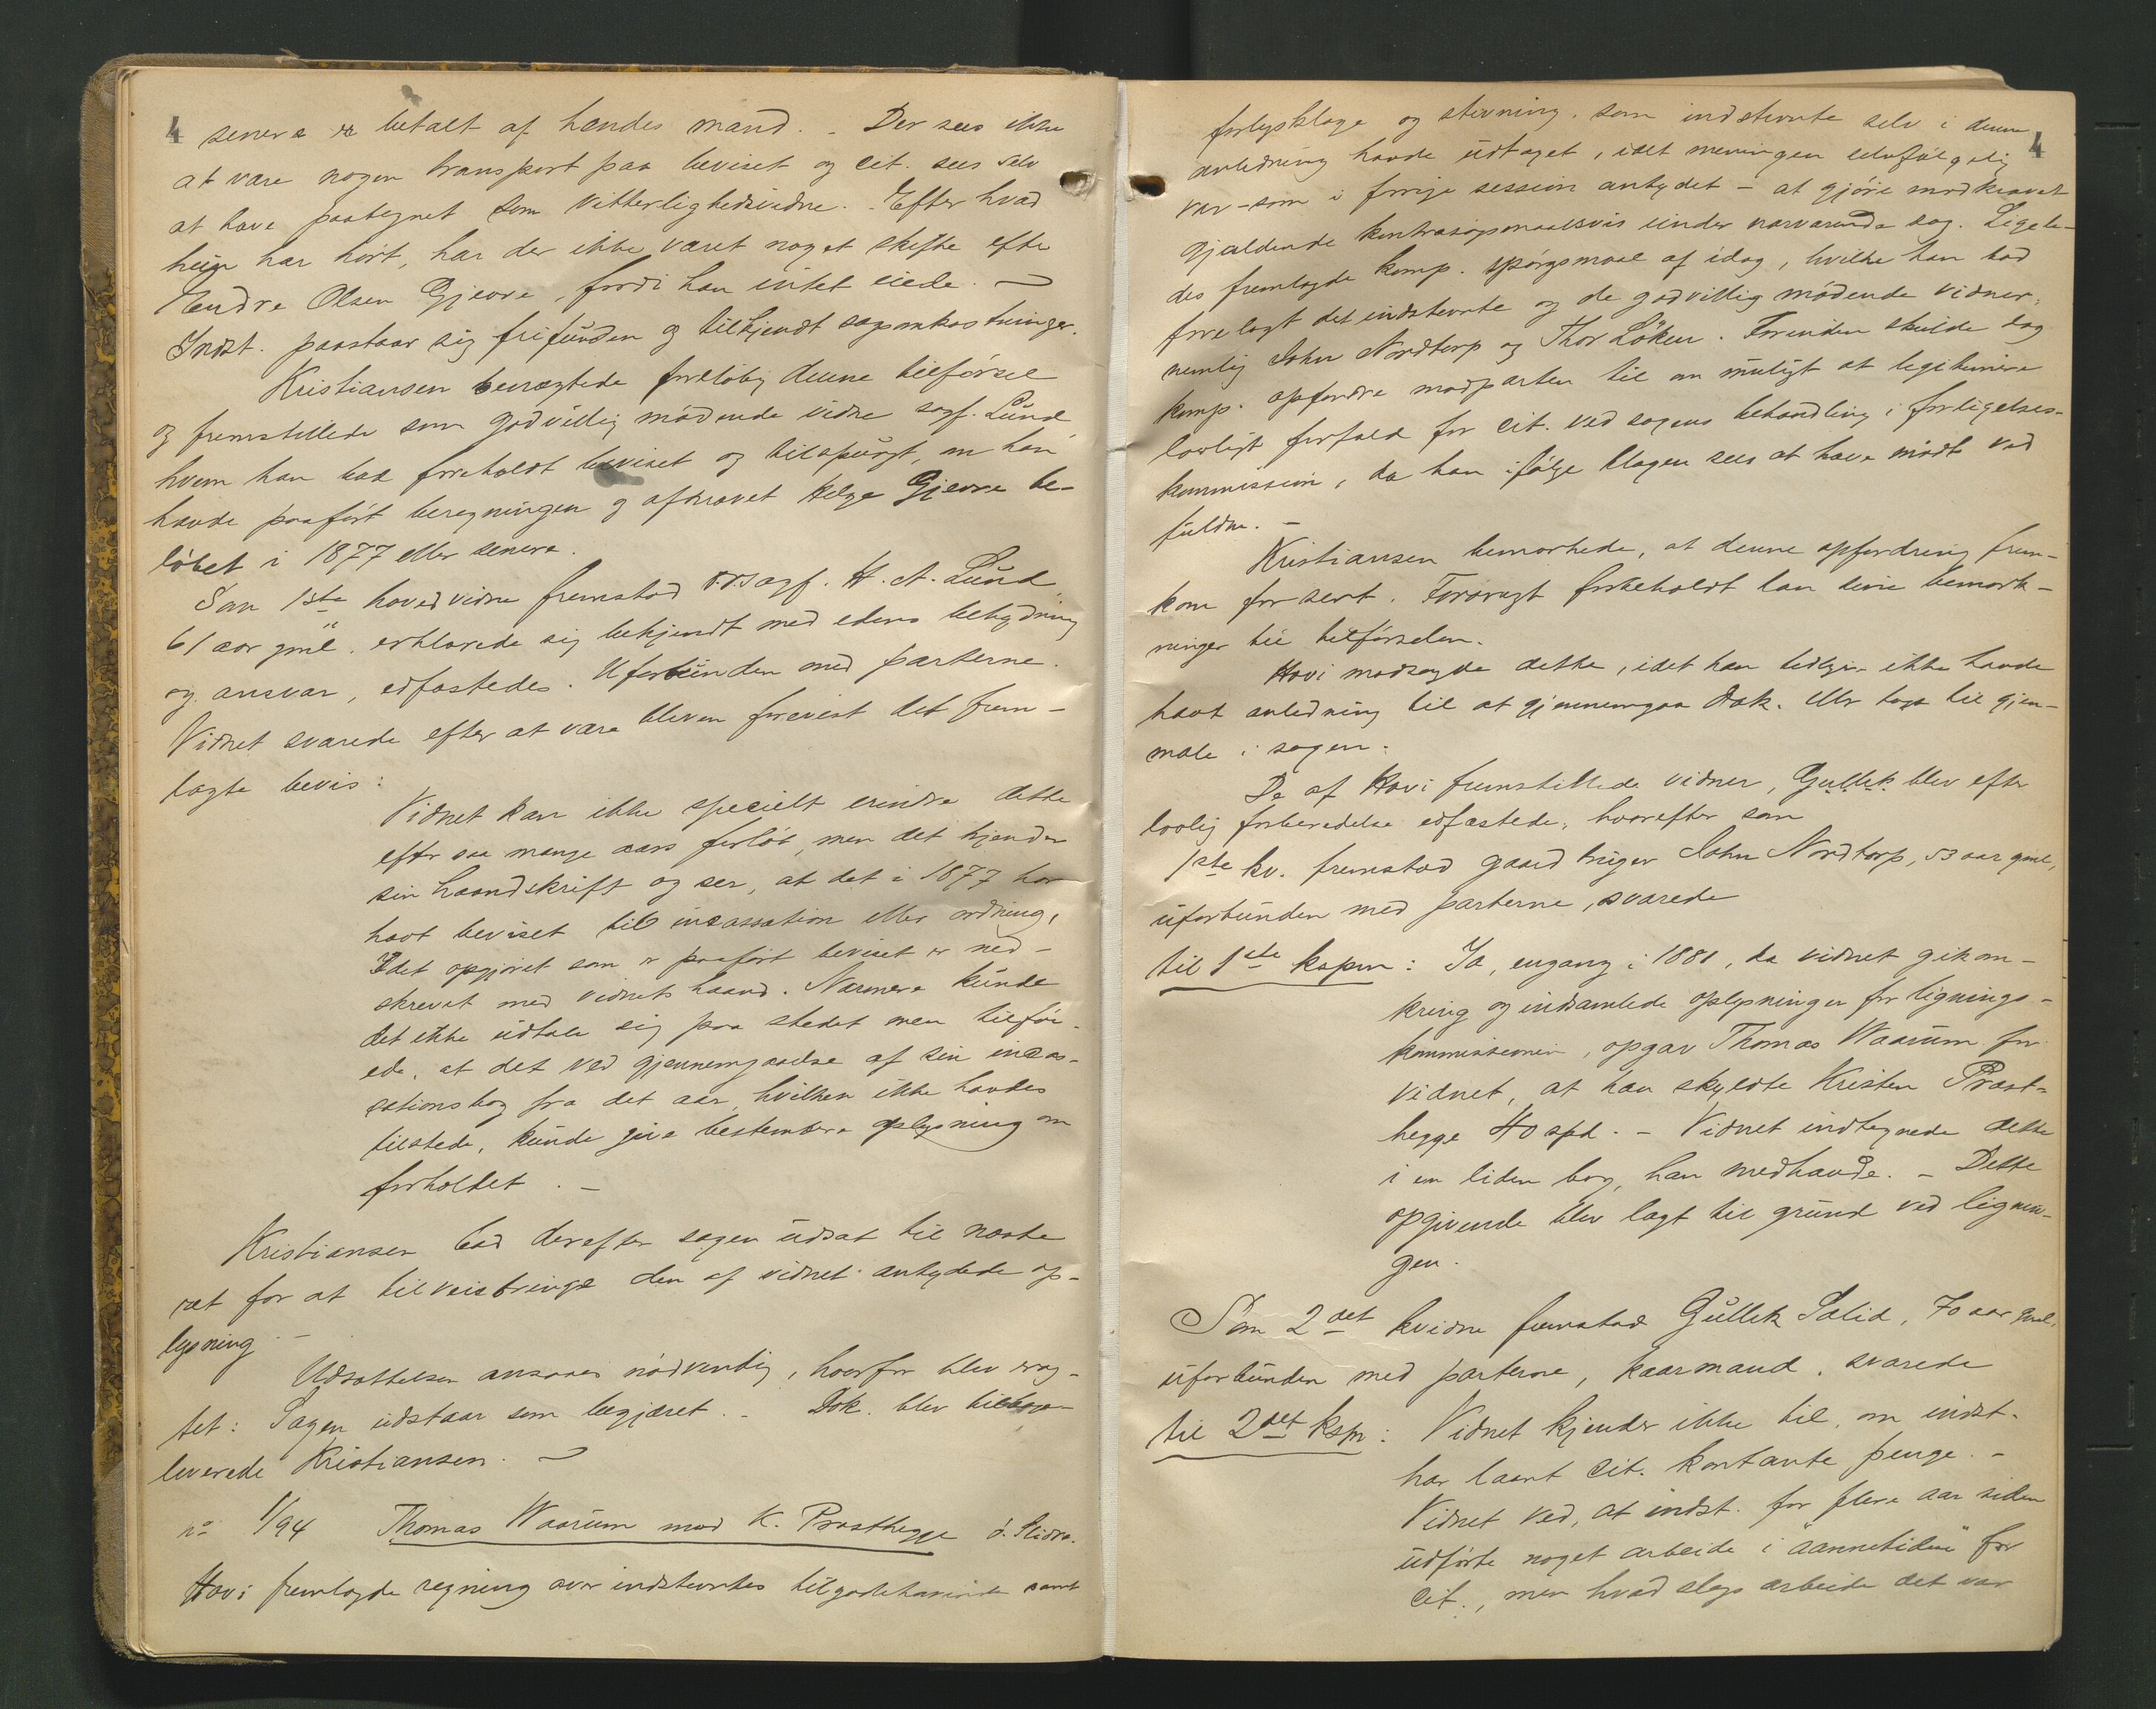 4
senere er betalt af hendes mand. - Der sees ikke
at være nogen transport paa beviset og cit. sees selv
at have paategnet som Vitterlighedsvidne. - Efter hvad
hun har hørt, har der ikke været noget skifte efter
Endre Olsen Gjevre, fordi han intet eiede. -
Indst. paastaar sig frifunden og tilkjendt sagsomkostninger.
Kristiansen benægtede foreløbig denne tilførsel
og fremstillede som godvillig mødende vidne sagf. Lund
hvem han bad foreholdt beviset og tilspurgt, om han
havde paaført beregningen og afkrævet Helge Gjevre be-
løbet i 1877 eller senere.
Som 1ste hovedvidne fremstod o.r.sagf. H. A. Lund
61 aar gml. erklærede sig bekjendt med edens betydning
og ansvar, edfæstedes. Uforbunden med parterne.
Vidnet svarede efter at være bleven forevist det frem-
lagte bevis:
Vidnet kan ikke specielt erindre dette
efter saa mange aars forløb, men det kjender
sin haandskrift og ser, at det i 1877 har
havt beviset til incassation eller ordning,
Idet opgjøret som er paaført beviset er ned-
skrevet med vidnets haand. Nærmere kunde
det ikke udtale sig paa stedet men tilføi-
ede, at det ved gjennemgaaelse af sin incas-
sationsbog fra det aar, hvilken ikke havdes
tilstede, kunde give bestemtere oplysning om
forholdet. -
Kristiansen bad derefter sagen udsat til næste
ret for at tilveiebringe den af vidnet antydede op-
lysning. -
Udsættelsen ansaaes nødvendig, hvorfor blev erag-
tet: Sagen udstaar som begjæret. - Dok. blev tilbage-
leverede Kristiansen. -
no 1/94 Thomas Waarum mod K. Præsthegge ö. Slidre.
Hovi fremlagde regning over indstevntes tilgodehavende samt
4
forligsklage og stevning, som indstevnte selv i denne
anledning havde udtaget, idet meningen selvfølgelig
var - som i forrige session antydet - at gjøre modkravet
gjældende kontrasøgsmaalsvis under nærværende sag. Ligele-
des fremlagde komp. spørgsmaal af idag, hvilke han bad
forelagt det indstevnte og de godvillig mødende vidner,
nemlig John Nordtorp og Thor Løken. Forinden skulde dog
komp. opfordre modparten til om muligt at legitimere
lovligt forfald for cit. ved sagens behandling i forligelses-
kommission, da han ifølge klagen sees at have mødt ved
fuldm. -
Kristiansen bemærkede, at denne opfordring frem-
kom for sent. Forøvrigt forbeholdt han sine bemærk-
ninger til tilførselen.
Hovi modsagde dette, idet han tidligere ikke havde
havt anledning til at gjennemgaa dok. eller tage til gjen-
mæle i sagen.
De af Hovi fremstillede vidner, Gullek blev efter
lovlig forberedelse edfæstede, hvorefter som
1ste kv. fremstod gaardbruger John Nordtorp, 53 aar gml,
uforbunden med parterne, svarede
til 1ste kspm: Ja, engang i 1881, da vidnet gik om-
kring og indsamlede oplysninger for lignings-
kommissionen, opgav Thomas Waarum for
vidnet, at han skyldte Kristen Præst-
hegge 40 spd. - Vidnet indtegnede dette
i en liden bog, han medhavde. - Dette
opgivende blev lagt til grund ved lignin-
gen.
Som 2det kvidne fremstod Gullek Solid, 70 aar gml,
uforbunden med parterne, kaarmand, svarede
til 2det kspm: Vidnet kjender ikke til, om indst.
har laant cit. kontante penge. -
Vidnet ved, at indst. for flere aar siden
udførte noget arbeide i "aannetiden" for
cit., men hvad slags arbeide det var